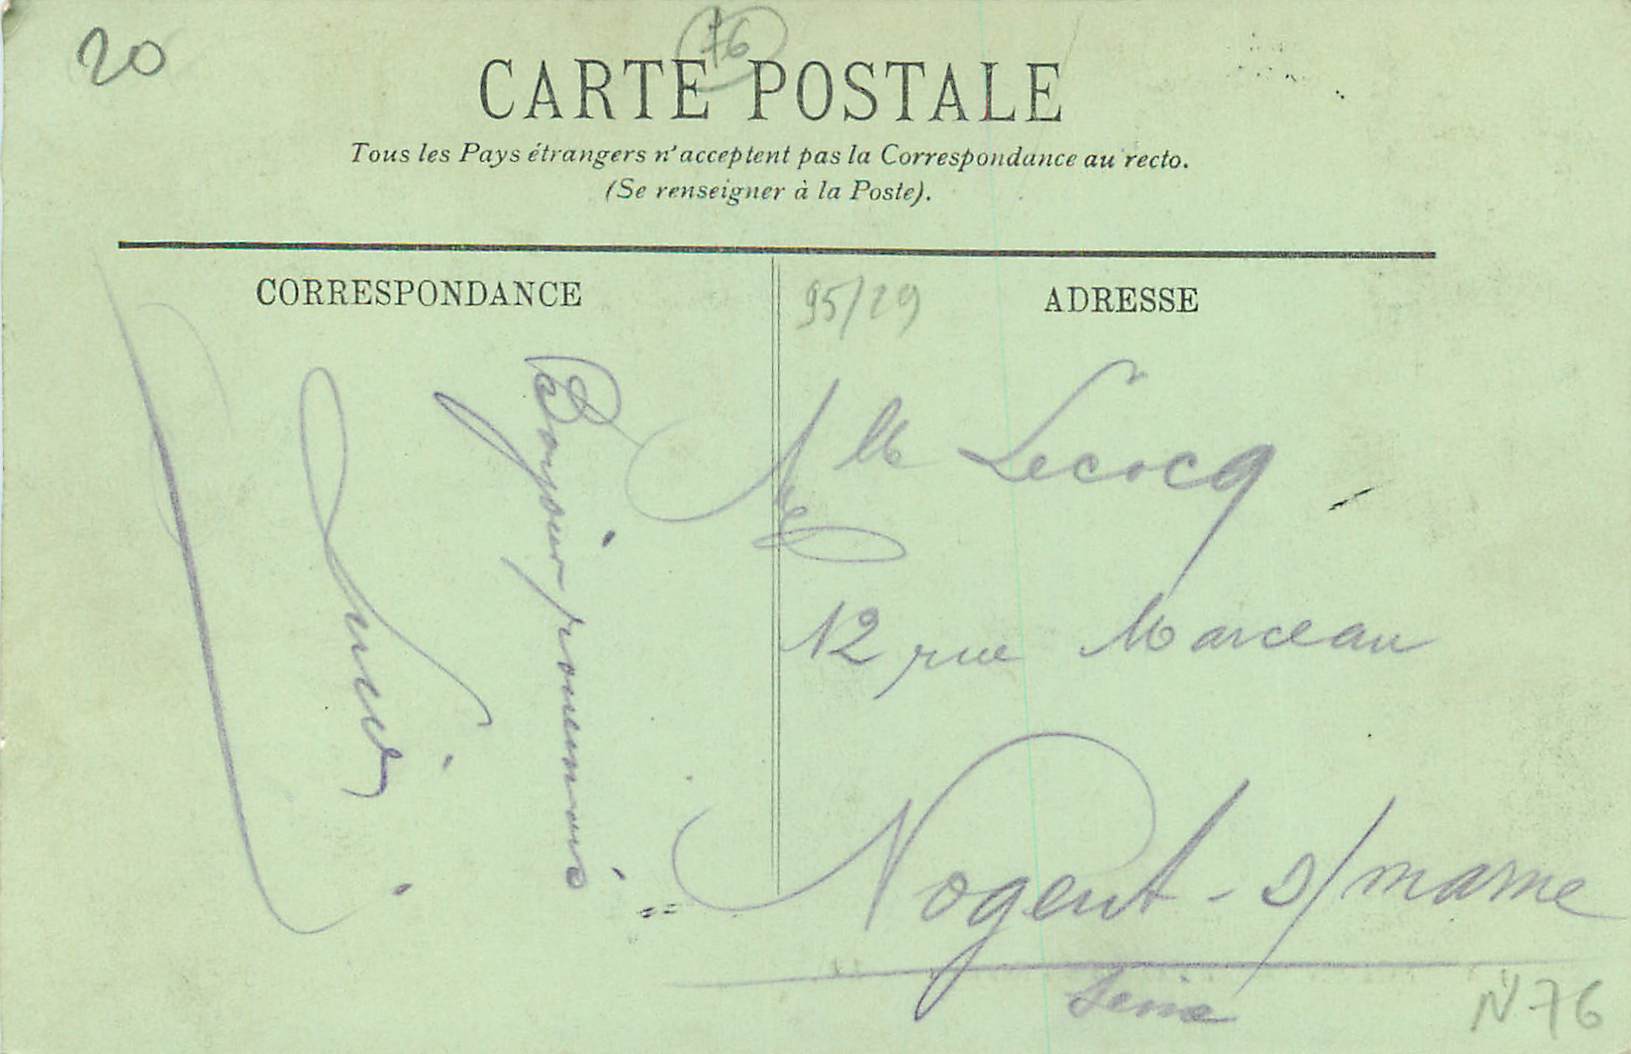 20
76
CARTE POSTALE
Tous les Pays étrangers n'acceptent pas la Correspondance au recto.
(Se renseigner à la Poste).
CORRESPONDANCE
Bonjour
95/29
ADRESSE
Mlle Lecocq
12 rue Marceau
Nogent-s/marne
Seine
N 76